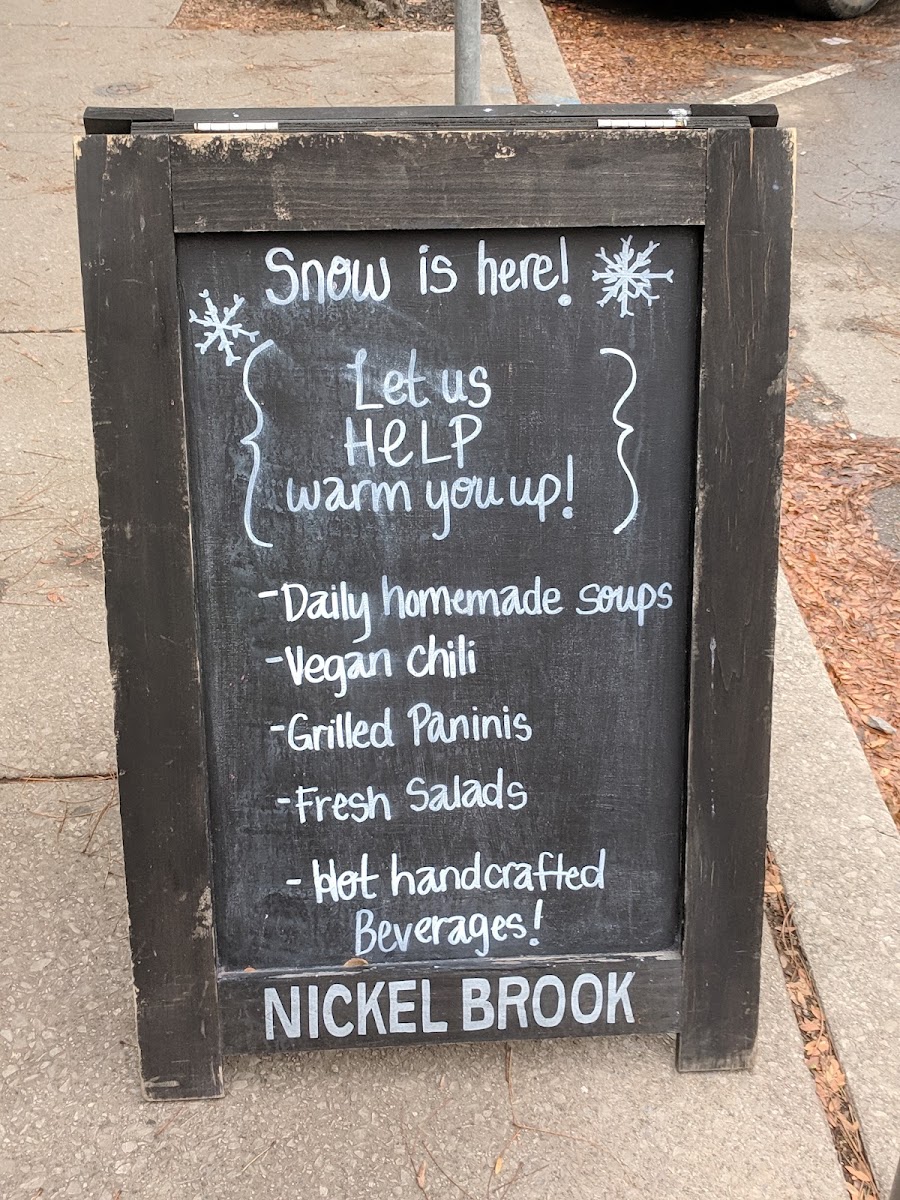 Snow is here!
Let us
HELP
warm you up!
-Daily homemade soups
-Vegan chili
-Grilled Paninis
-Fresh Salads
- Hot handcrafted
Beverages!
NICKEL BROOK